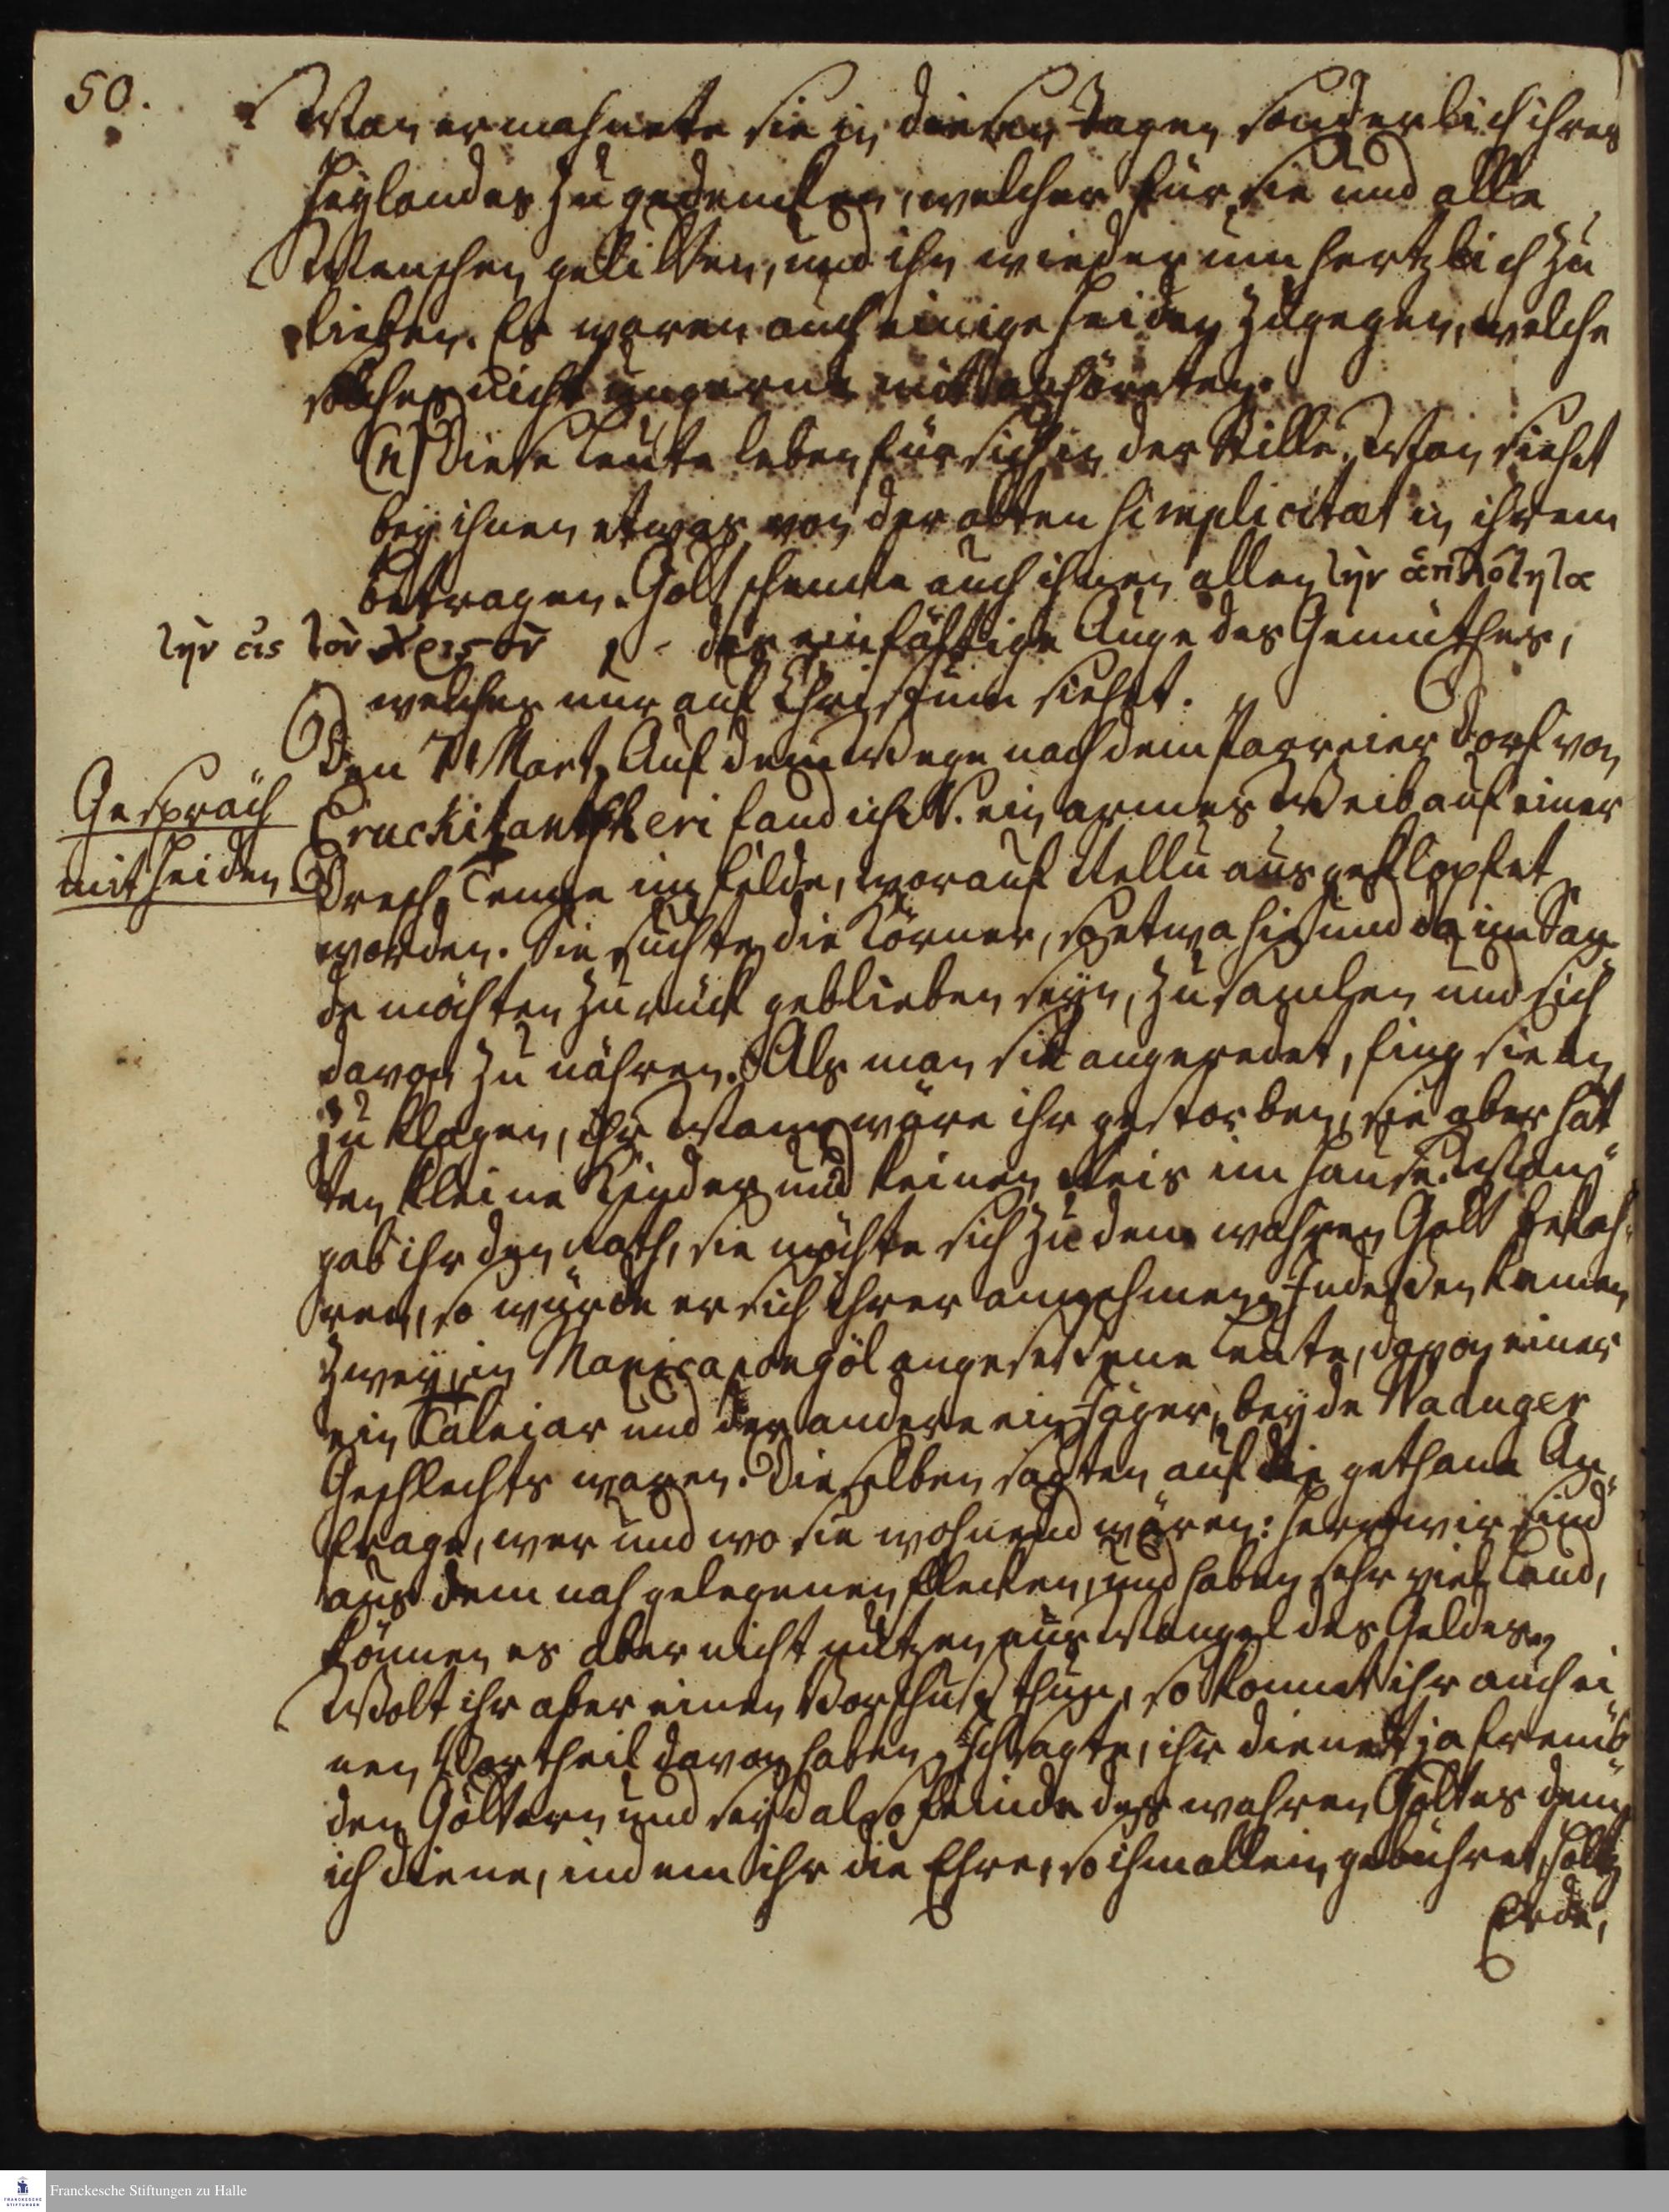 50.
Man ermahnete sie in diesen Tagen sonderlich ihres
Heylandes zu gedencken, welcher für sie und alle
Menschen gelitten, und ihn wiederum hertzlich zu
lieben. Es waren auch einige Heiden zugegen, welche
solches nicht ungerne mit anhöreten.
(n) Diese Leute leben für sich in der Stille. Man siehet
bey ihnen etwas von der alten Simplicitæt in ihrem
Betragen. Gott schencke auch ihnen allen τὴν ἁπλότητα
τὴν εἰς τὸν Χριστὸν, - das einfältige Auge des Gemüthes,
welches nur auf Christum siehet.
Gespräch
mit Heiden
Den 7 Mart. Auf dem Wege nach dem Parreier Dorf von
Eruckitantscheri fand ich N. ein armes Weib auf einer
Dresch-Tenne im Felde, worauf Nellu ausgeklopfet
worden. Sie suchte die Körner, so etwa hie und da im San-
de möchten zurück geblieben seyn, zu samlen und sich
davon zu nähren. Als man sie angeredet, fing sie an
zu klagen, ihr Mann wäre ihr gestorben, sie aber hät-
ten kleine Kinder und keinen Reis im Hause. Man
gab ihr den Rath, sie möchte sich zu dem wahren Gott bekeh-
ren, so würde er sich ihrer annehmen. Indessen kamen
zwey, in angesessene Leute, davon einer
ein Taleiar und der andere ein Jäger, beyde Waduger
Geschlechts waren. Dieselben sagten auf die gethane An-
frage, wer und wo sie wohnend wären: Herr wir sind
aus dem nah gelegenen Flecken, und haben sehr viel Land,
können es aber nicht nutzen aus Mangel des Geldes.
Wolt ihr aber einen Vorschuß thun, so könnet ihr auch ei-
nen Vortheil davon haben. Ich sagte, ihr dienet ja frem-
den Göttern und seyd also Feinde des wahren Gottes dem
ich diene, indem ihr die Ehre, so ihm allein gebühret, Holtz
Erde,
Franckesche Stiftungen zu Halle